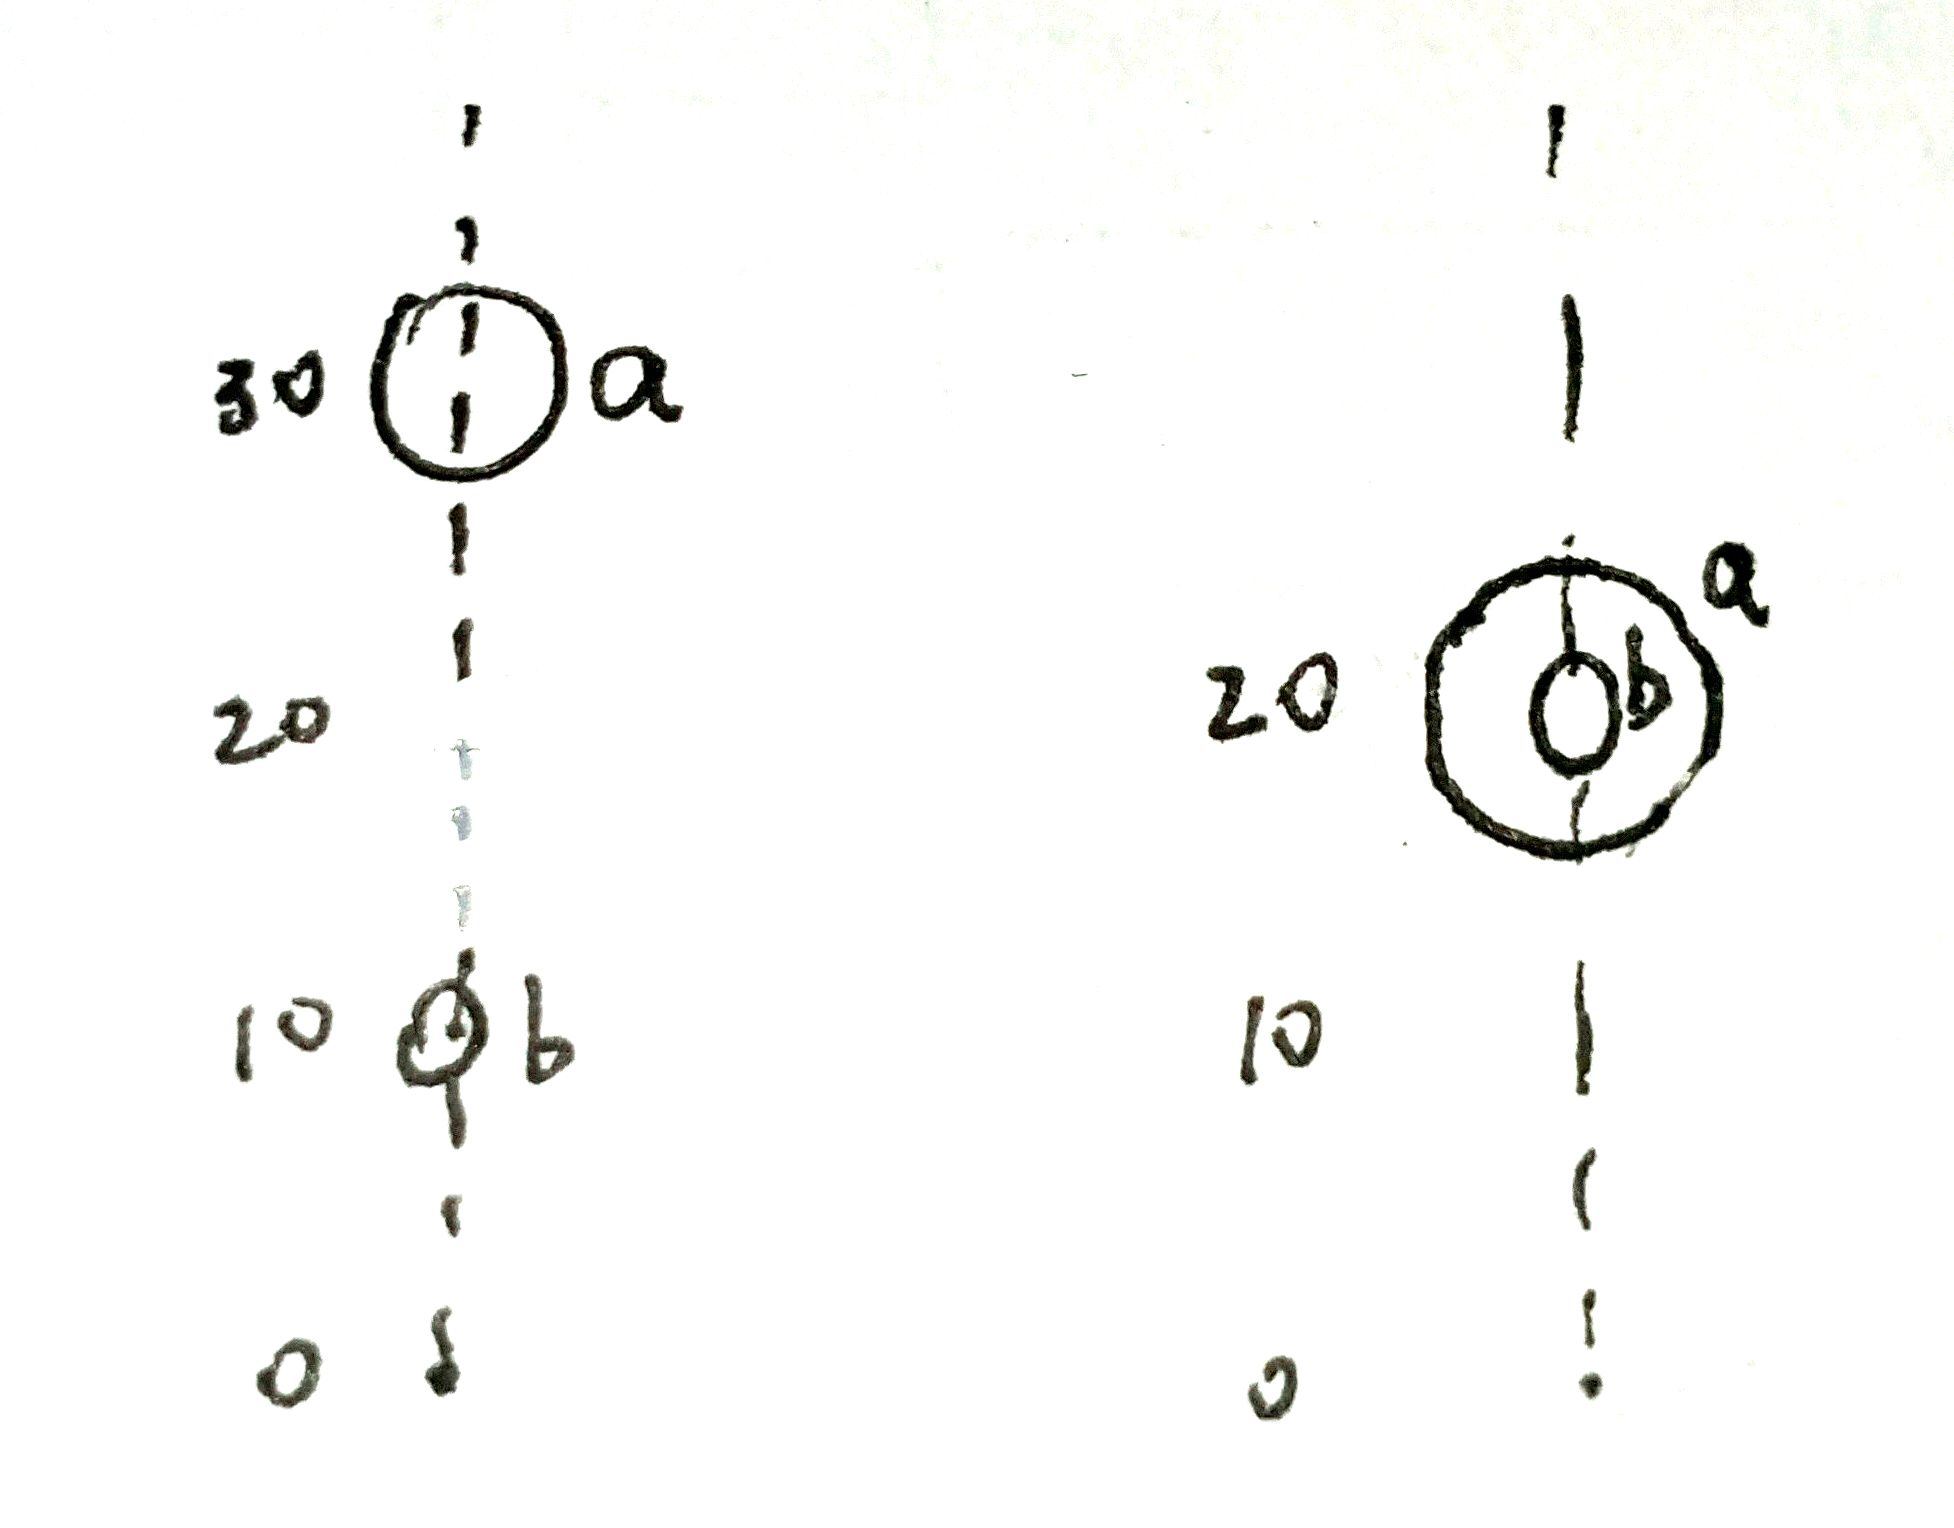 30 a
20
10 b
0
a
20 b
10
0